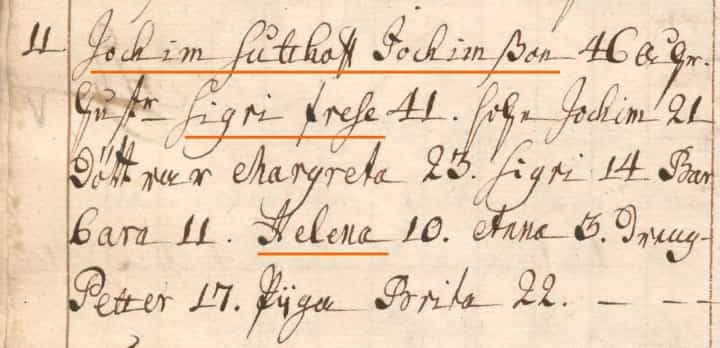 11. Jochim Sutthoff Jochimßon 46 Gr.
Hustr Sigri Frese 41. Sohn Jochim 21
Döttrar Margreta 23. Sigri 14 Bar
bara 11. Helena 10. Anna 3. Dräng-
Petter 17. Piga Brita 22. — — —